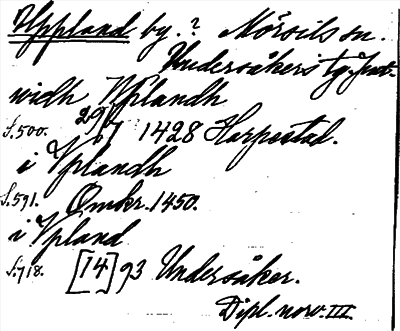 Uppland by. ? Mörsils sn.
Undersåkers tg. Jmt.
widh Vplandh
S. 500. 29/7 1428 Harpestad.
i Vplandh
S. 591. Omkr. 1450.
i Vpland
S. 718. [14]93 Undersåker.
Dipl. norv. III.